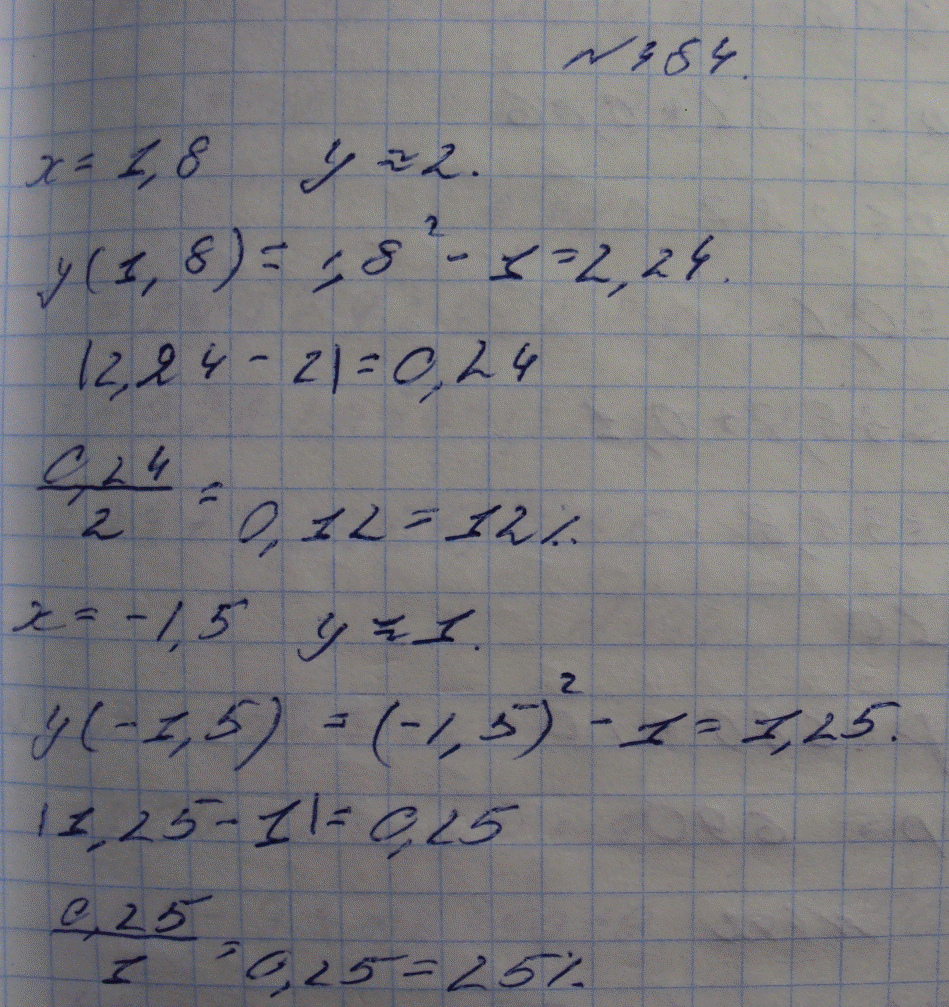 № 484.
x = 1,8 y ≈ 2.
y(1,8) = 1,8² - 1 = 2,24.
|2,24 - 2| = 0,24
0,24/2 = 0,12 = 12%.
x = -1,5 y ≈ 1.
y(-1,5) = (-1,5)² - 1 = 1,25.
|1,25 - 1| = 0,25
0,25/1 = 0,25 = 25%.